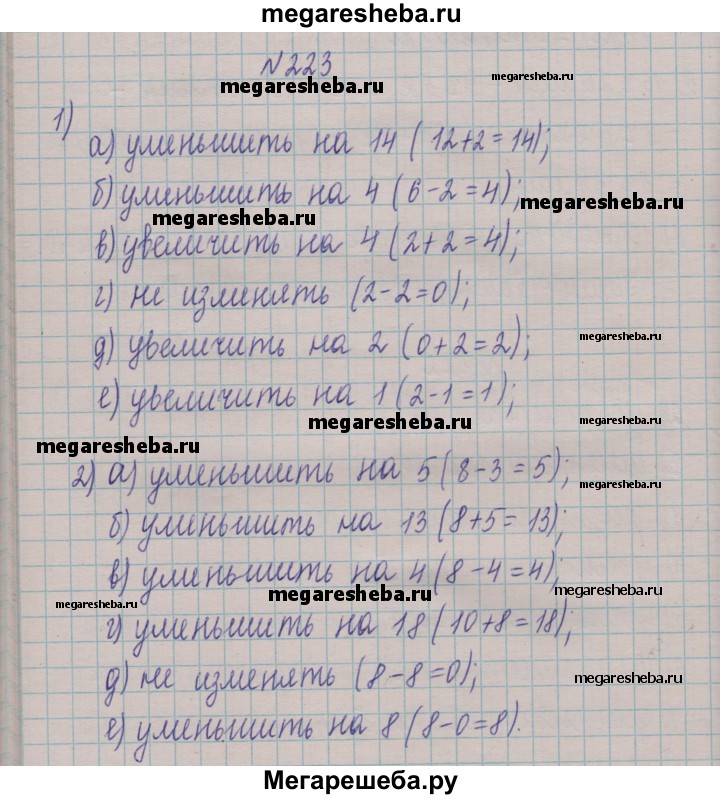 megaresheba.ru
N 223
megaresheba.ru
megaresheba.ru
1)
а) уменьшить на 14 (12+2=14);
б) уменьшить на 4 (6-2=4);
megaresheba.ru
megaresheba.ru
в) увеличить на 4 (2+2=4);
г) не изменять (2-2=0);
д) увеличить на 2 (0+2=2);
megaresheba.ru
е) увеличить на 1 (2-1=1);
megaresheba.ru
megaresheba.ru
megaresheba.ru
2) а) уменьшить на 5 (8-3=5);
megaresheba.ru
б) уменьшить на 13 (8+5=13);
в) уменьшить на 4 (8-4=4);
megaresheba.ru
megaresheba.ru
megaresheba.ru
г) уменьшить на 18 (10+8=18);
д) не изменять (8-8=0);
megaresheba.ru
е) уменьшить на 8 (8-0=8).
Мегарешеба.ру